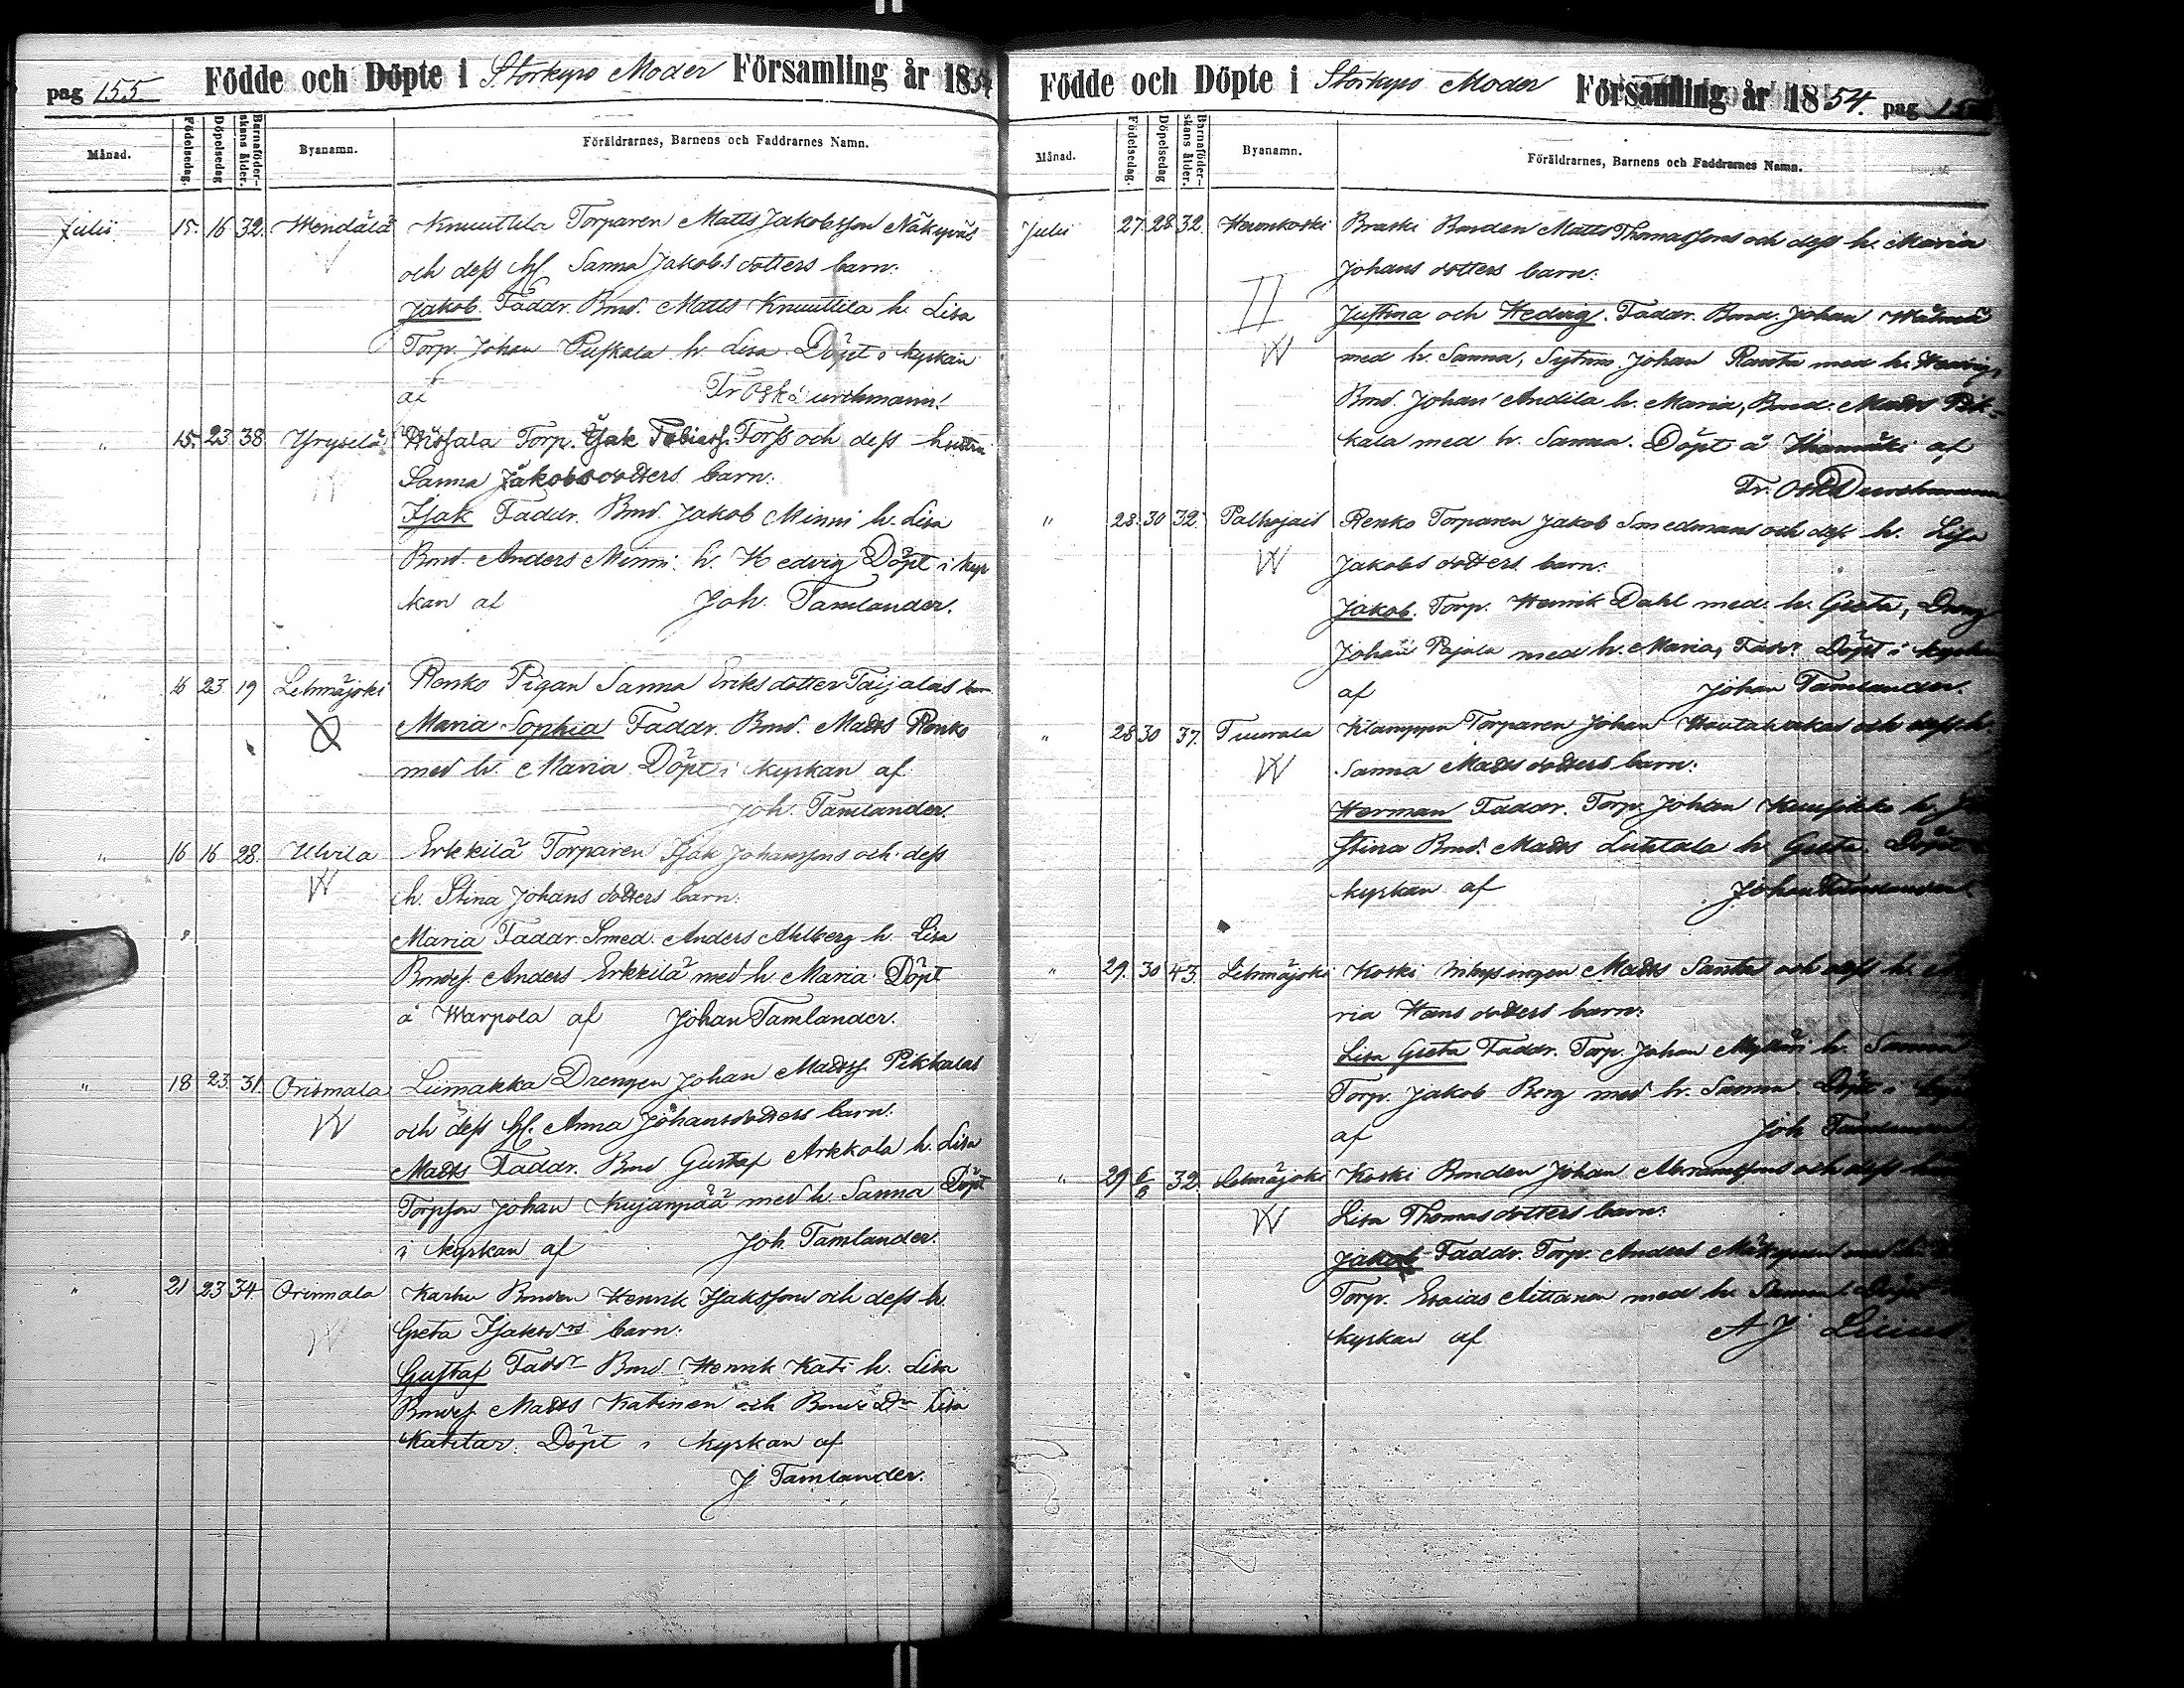 pag 155 Födde och Döpte i Storkyro Moder Församling år 1854
Månad. Födelsedag. Döpelsedag Barnaföderskans ålder. Byanamn. Föräldrarnes, Barnens och Faddrarnes Namn.
Julii 15. 16 32. Wendälä Knuuttila Torparen Matts Jakobsson Näkyväs
och dess h Sanna Jakobsdotters barn:
Jakob. Faddr. Bnd. Matts Knuuttila h. Lisa
Torp. Johan h. Lisa Döpt i kyrkan
af Fr Osk Durchmann.
" 15. 23 38 Yryselä Torp. Isak Tobiass. Forss och dess hustru
Sanna Jakobsdotters barn:
Isak Faddr. Bnd. Jakob Minni h. Lisa
Bnd. Anders Minni h. Hedvig Döpt i kyr
kan af Joh. Tamlander.
" 16 23 19 Lehmäjoki Renko Pigan Sanna Eriksdotter Taijalas barn
Maria Sophia Faddr. Bnd. Madts Renko
med h. Maria Döpt i kyrkan af
Joh. Tamlander.
" 16 16 28. Ulvila Erkkilä Torparen Isak Johanssons och dess
h. Stina Johansdotters barn:
Maria Faddr. Smed. Anders Ahlberg h. Lisa
Bndes. Anders Erkkilä med h. Maria. Döpt
å Warpola af Johan Tamlander.
" 18 23. 31. Orismala Liimakka Drengen Johan Madtss. Pikkalas
och dess h. Anna Johansdotters barn:
Madts Faddr. Bnd Gustaf Arkkola h. Lisa
Torpson Johan Kujanpää med h. Sanna Döpt
i kyrkan af Joh. Tamlander.
" 21 23 34. Orismala Karhu Bonden Henrik Isakssons och dess h.
Greta Isaksdrs barn:
Gustaf Faddr Bnd. Henrik Kati h. Lisa
Bndes. Madts Katinen och Lisa
Katitar. Döpt i kyrkan af
J Tamlander.
Födde och Döpte i Storkyro Moder Församling år 1854. pag
Månad. Födelsedag. Döpelsedag Barnaföderskans ålder. Byanamn. Föräldrarnes, Barnens och Faddrarnes Namn.
Julii 27. 28. 32. Bonden Matts Thomassons och dess h. Maria
Johansdotters barn:
Justina och Hedvig. Faddr. Bnd. Johan
med h. Sanna, Sytnm. Johan Rauta med h. Hedvig,
Bnd. Johan Andila h. Maria, Bnd. Madts Pik-
kala med h. Sanna. Döpt å af
Fr. Osk Durchmann
" 28. 30 32. Palhojais Renko Torparen Jakob Smedmans och dess h. Lisa
Jakobsdotters barn:
Jakob. Torp. Henrik Dahl med h. Greta, Dreng
Johan Pajula med h. Maria, Faddr. Döpt i kyrkan
af Johan Tamlander.
" 28 30 37. Tuurala Klamppu Torparen Johan Hautakankas och dess h.
Sanna Madtsdotters barn:
Herman Faddr. Torp. Johan h.
Stina Bnd. Madts Luhtala h. Greta. Döpt
kyrkan af Johan Tamlander.
" 29. 30 43. Lehmäjoki Koski Inhysingen Madts Santa och dess h. Ma
ria Hansdotters barn:
Lisa Greta Faddr. Torp. Johan h. Sanna
Torp. Jakob Berg med h. Sanna. Döpt i
af Joh Tamlander.
" 29 6/8 32. Lehmäjoki Koski Bonden Johan Abramssons och dess
Lisa Thomasdotters barn:
Jakob Faddr. Torp. Anders med h.
Torp. Esaias Aittanen med h. Sanna. Döpt
kyrkan af A J